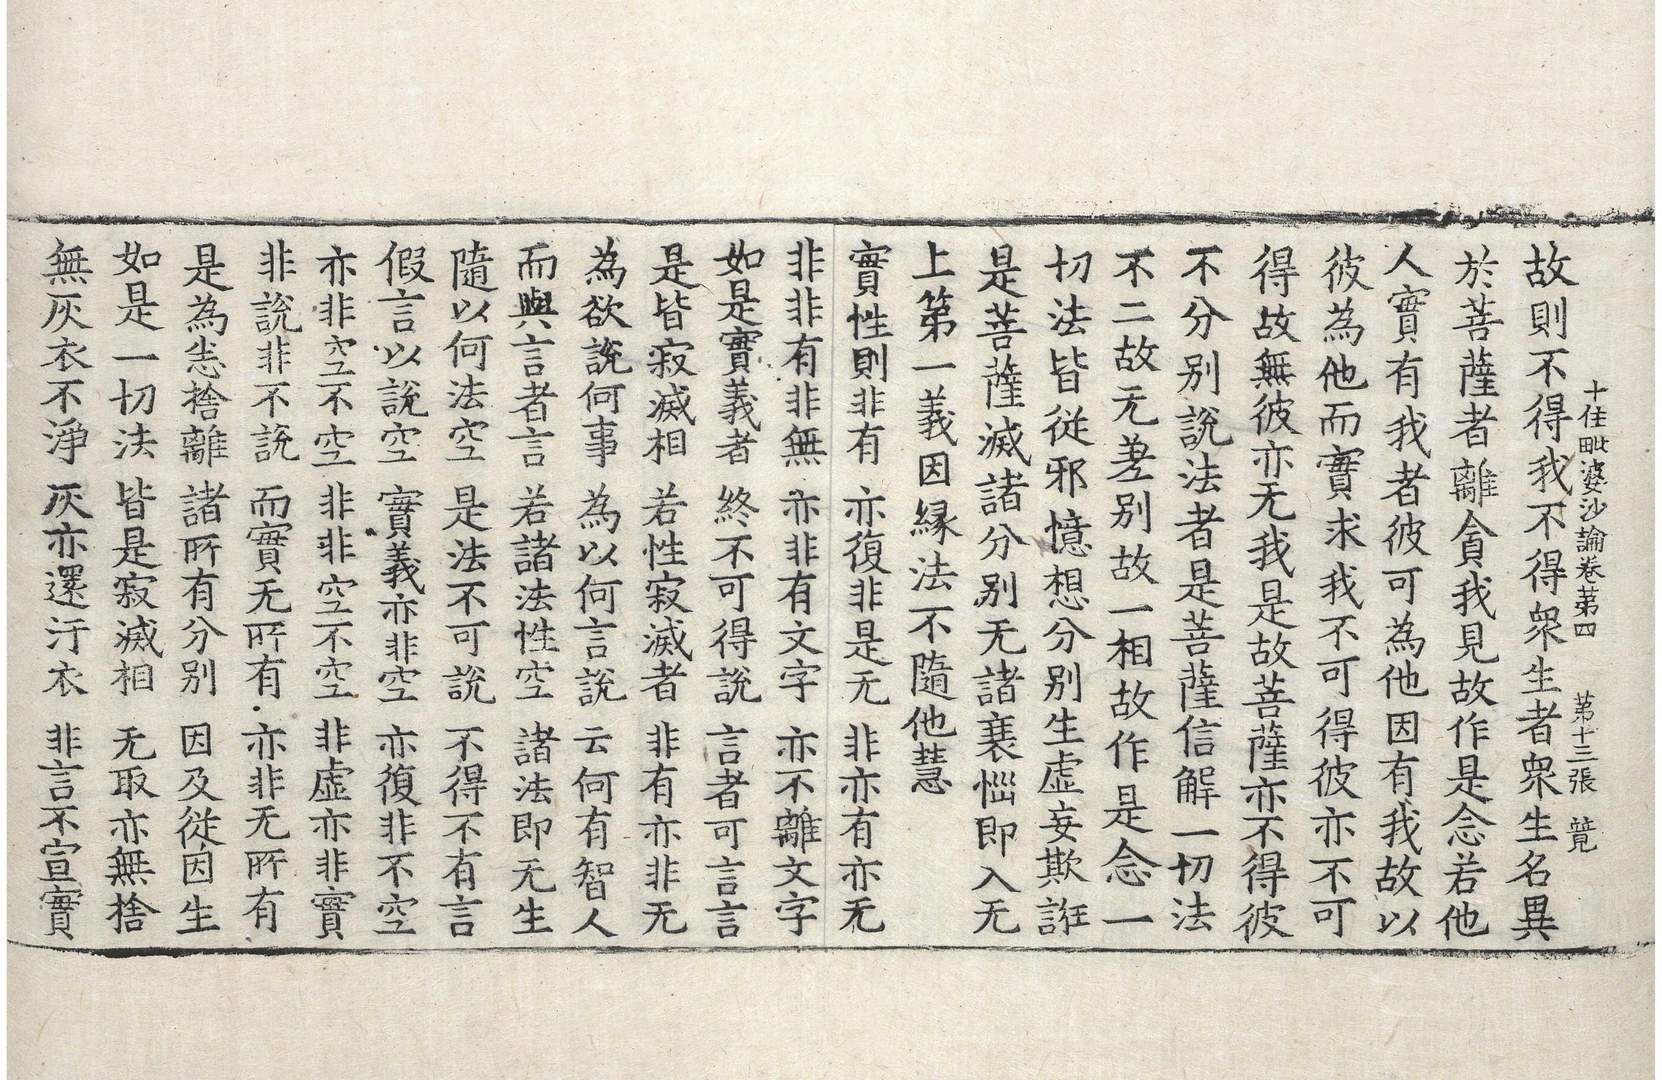 十住毗婆沙論卷第四 第十三張 筧
故則不得我不得衆生者衆生名異
於菩薩者離貪我見故作是念若他
人實有我者彼可為他因有我故以
彼為他而實求我不可得彼亦不可
得故無彼亦无我是故菩薩亦不得彼
不分別說法者是菩薩信解一切法
不二故无差別故一相故作是念一
切法皆從邪憶想分別生虛妄欺誑
是菩薩滅諸分別无諸衰惱即入无
上第一義因緣法不隨他慧
實性則非有 亦復非是无 非亦有亦无
非非有非無 亦非有文字 亦不離文字
如是實義者 終不可得說 言者可言言
是皆寂滅相 若性寂滅者 非有亦非无
為欲說何事 為以何言說 云何有智人
而與言者言 若諸法性空 諸法即无生
隨以何法空 是法不可說 不得不有言
假言以說空 實義亦非空 亦復非不空
亦非空不空 非非空不空 非虛亦非實
非說非不說 而實无所有 亦非无所有
是為悉捨離 諸所有分別 因及從因生
如是一切法 皆是寂滅相 无取亦無捨
無灰衣不淨 灰亦還汙衣 非言不宣實